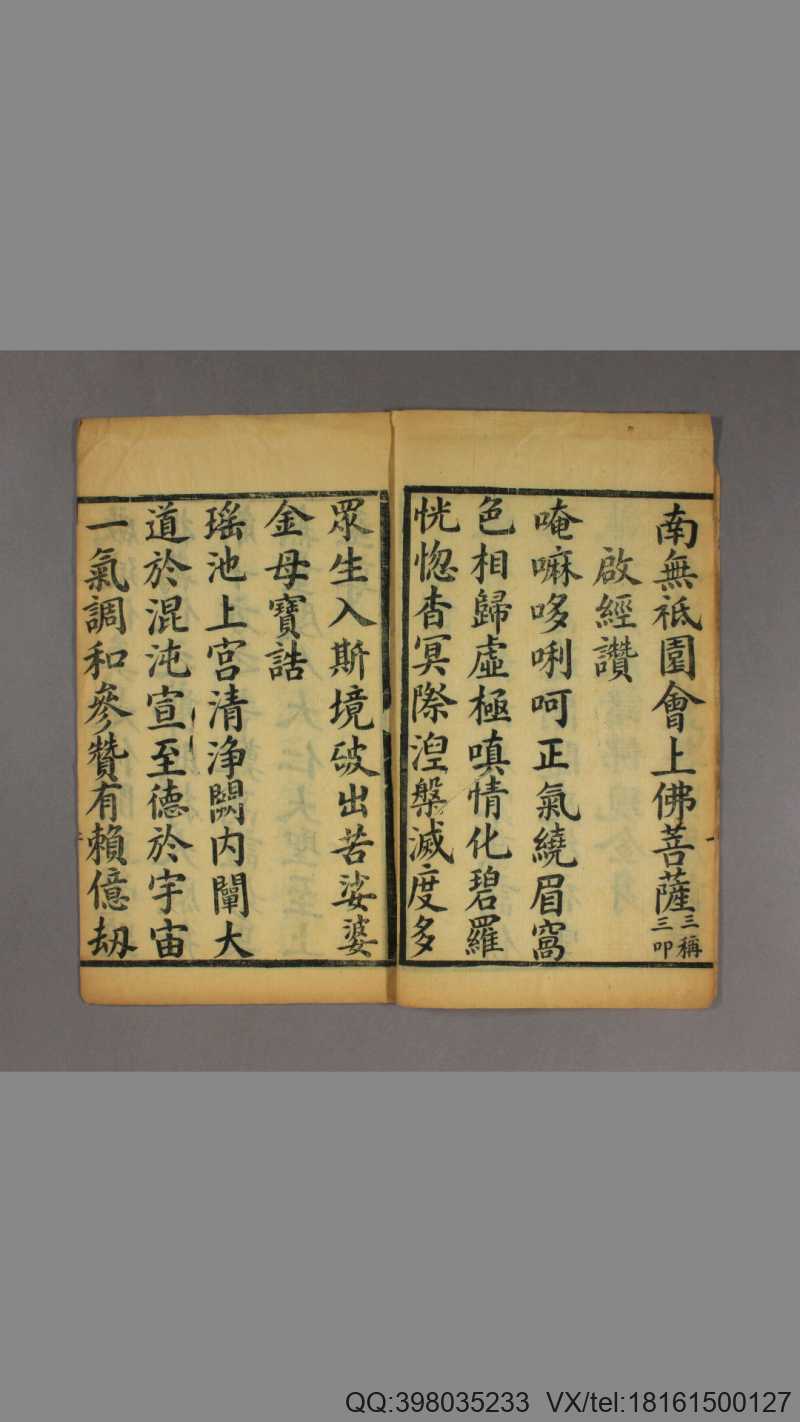 南無祗園會上佛菩薩三稱三叩
啟經讚
唵嘛哆唎呵正氣繞眉窩
色相歸虛極嗔情化碧羅
恍惚杳冥際湼槃滅度多
眾生入斯境破出苦娑婆
金母寶誥
瑤池上宮清淨闕内闡大
道於混沌宣至德於宇宙
一氣調和參贊有賴億劫
QQ:398035233 VX/tel:18161500127